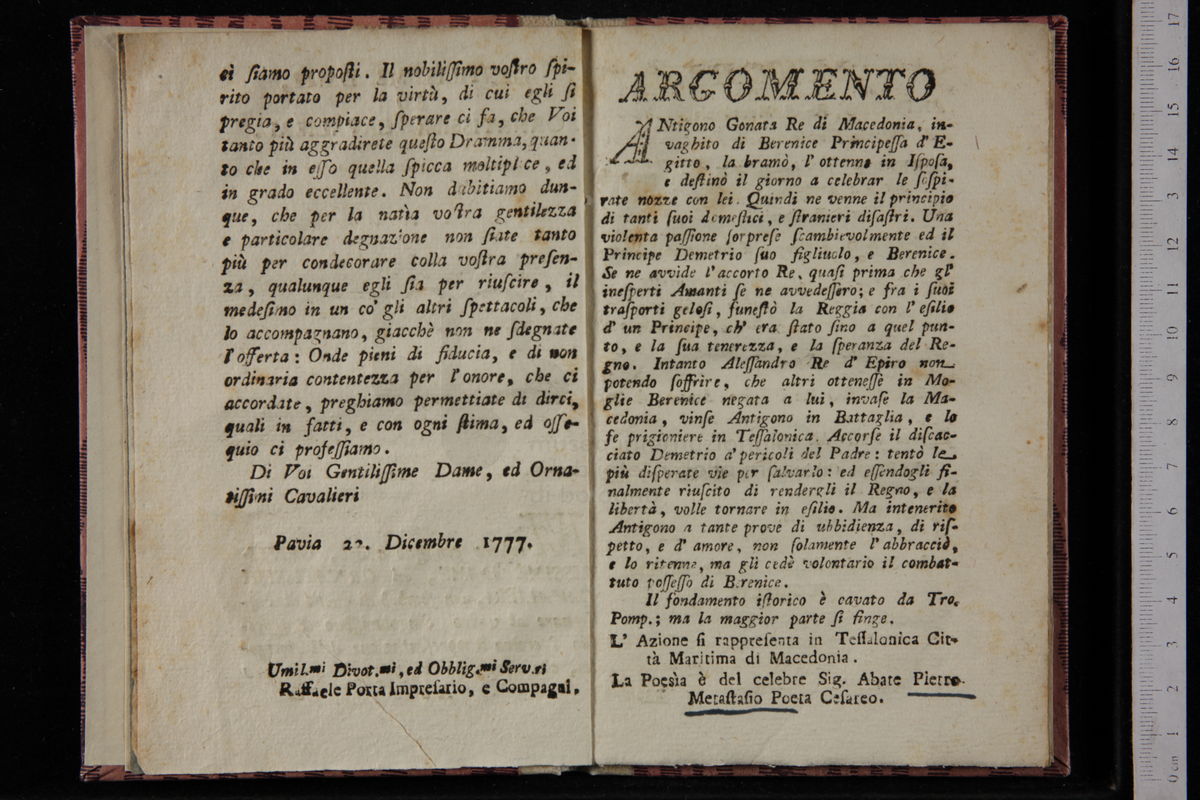 ci ſiamo propoſti. Il nobiliſſimo voſtro ſpi-
rito portato per la virtù, di cui egli ſi
pregia, e compiace, ſperare ci fa, che Voi
tanto più aggradirete queſto Dramma, quan-
to che in eſſo quella ſpicca moltiplice, ed
in grado eccellente. Non dubitiamo dun-
que, che per la natìa voſtra gentilezza
e particolare degnazione non ſiate tanto
più per condecorare colla voſtra preſen-
za, qualunque egli ſia per riuſcire, il
medeſimo in un co' gli altri ſpettacoli, che
lo accompagnano, giacchè non ne ſdegnate
l'offerta: Onde pieni di fiducia, e di non
ordinaria contentezza per l'onore, che ci
accordate, preghiamo permettiate di dirci,
quali in fatti, e con ogni ſtima, ed oſſe-
quio ci profeſſiamo.
Di Voi Gentiliſſime Dame, ed Orna-
tiſſimi Cavalieri
Pavia 22. Dicembre 1777.
Umil.mi Divot.mi, ed Obblig.mi Serv.ri
Raffaele Porta Impreſario, e Compagni.
ARGOMENTO
ANtigono Gonata Re di Macedonia, in-
vaghito di Berenice Principeſſa d'E-
gitto, la bramò, l'ottenne in Iſpoſa,
e deſtinò il giorno a celebrar le ſoſpi-
rate nozze con lei. Quindi ne venne il principio
di tanti ſuoi domeſtici, e ſtranieri diſaſtri. Una
violenta paſſione ſorpreſe ſcambievolmente ed il
Principe Demetrio ſuo figliuolo, e Berenice.
Se ne avvide l'accorto Re, quaſi prima che gl'
ineſperti Amanti ſe ne avvedeſſero; e fra i ſuoi
traſporti geloſi, funeſtò la Reggia con l'eſilio
d'un Principe, ch'era ſtato ſino a quel pun-
to, e la ſua tenerezza, e la ſperanza del Re-
gno. Intanto Aleſſandro Re d'Epiro non
potendo ſoffrire, che altri otteneſſe in Mo-
glie Berenice negata a lui, invaſe la Ma-
cedonia, vinſe Antigono in Battaglia, e lo
fe prigioniere in Teſſalonica. Accorſe il diſcac-
ciato Demetrio a' pericoli del Padre: tentò le
più diſperate vie per ſalvarlo: ed eſſendogli fi-
nalmente riuſcito di rendergli il Regno, e la
libertà, volle tornare in eſilio. Ma intenerito
Antigono a tante prove di ubbidienza, di riſ-
petto, e d'amore, non ſolamente l'abbracciò,
e lo ritenne, ma gli cedè volontario il combat-
tuto poſſeſſo di Berenice.
Il fondamento iſtorico è cavato da Tro.
Pomp.; ma la maggior parte ſi finge.
L'Azione ſi rappreſenta in Teſſalonica Cit-
tà Maritima di Macedonia.
La Poeſìa è del celebre Sig. Abate Pietro
Metaſtaſio Poeta Ceſareo.
17
16
15
14
13
12
11
10
9
8
7
6
5
4
3
2
1
0 cm